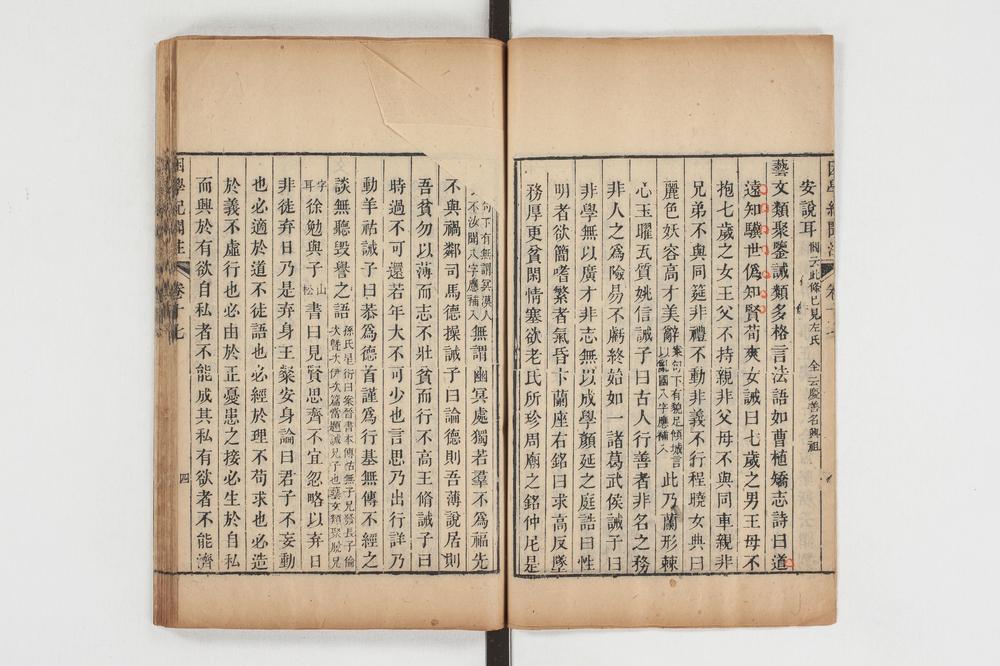 安說耳閻云此條已見左氏 全云慶善名興祖
藝文類聚鑒誡類多格言法語如曹植矯志詩曰道
遠知驥世偽知賢荀爽女誡曰七歲之男王母不
抱七歲之女王父不持親非父母不與同車親非
兄弟不與同筵非禮不動非義不行程曉女典曰
麗色妖容高才美辭案句下有貌足傾城言以亂國八字應補入此乃蘭形棘
心玉曜瓦質姚信誡子曰古人行善者非名之務
非人之為險易不虧終始如一諸葛武侯誡子曰
非學無以廣才非志無以成學顏延之庭誥曰性
明者欲簡嗜繁者氣昏卞蘭座右銘曰求高反墜
務厚更貧閑情塞欲老氏所珍周廟之銘仲尼是
句下有無謂冥漠人不汝聞八字應補入無謂幽冥處獨若羣不為福先
不與禍鄰司馬德操誡子曰論德則吾薄說居則
吾貧勿以薄而志不壯貧而行不高王脩誡子曰
時過不可還若年大不可少也言思乃出行詳乃
動羊祜誡子曰恭為德首謹為行基無傳不經之
談無聽毀譽之語孫氏星衍曰案晉書本傳祜無子兄發長子倫次曁次伊次篇當題誡兄子也藝文類聚脫兄
字耳徐勉與子山松書曰見賢思齊不宜忽略以弃日
非徒弃日乃是弃身王粲安身論曰君子不妄動
也必適於道不徒語也必經於理不苟求也必造
於義不虛行也必由於正憂患之接必生於自私
而興於有欲自私者不能成其私有欲者不能濟
困學紀聞注 卷十七 四